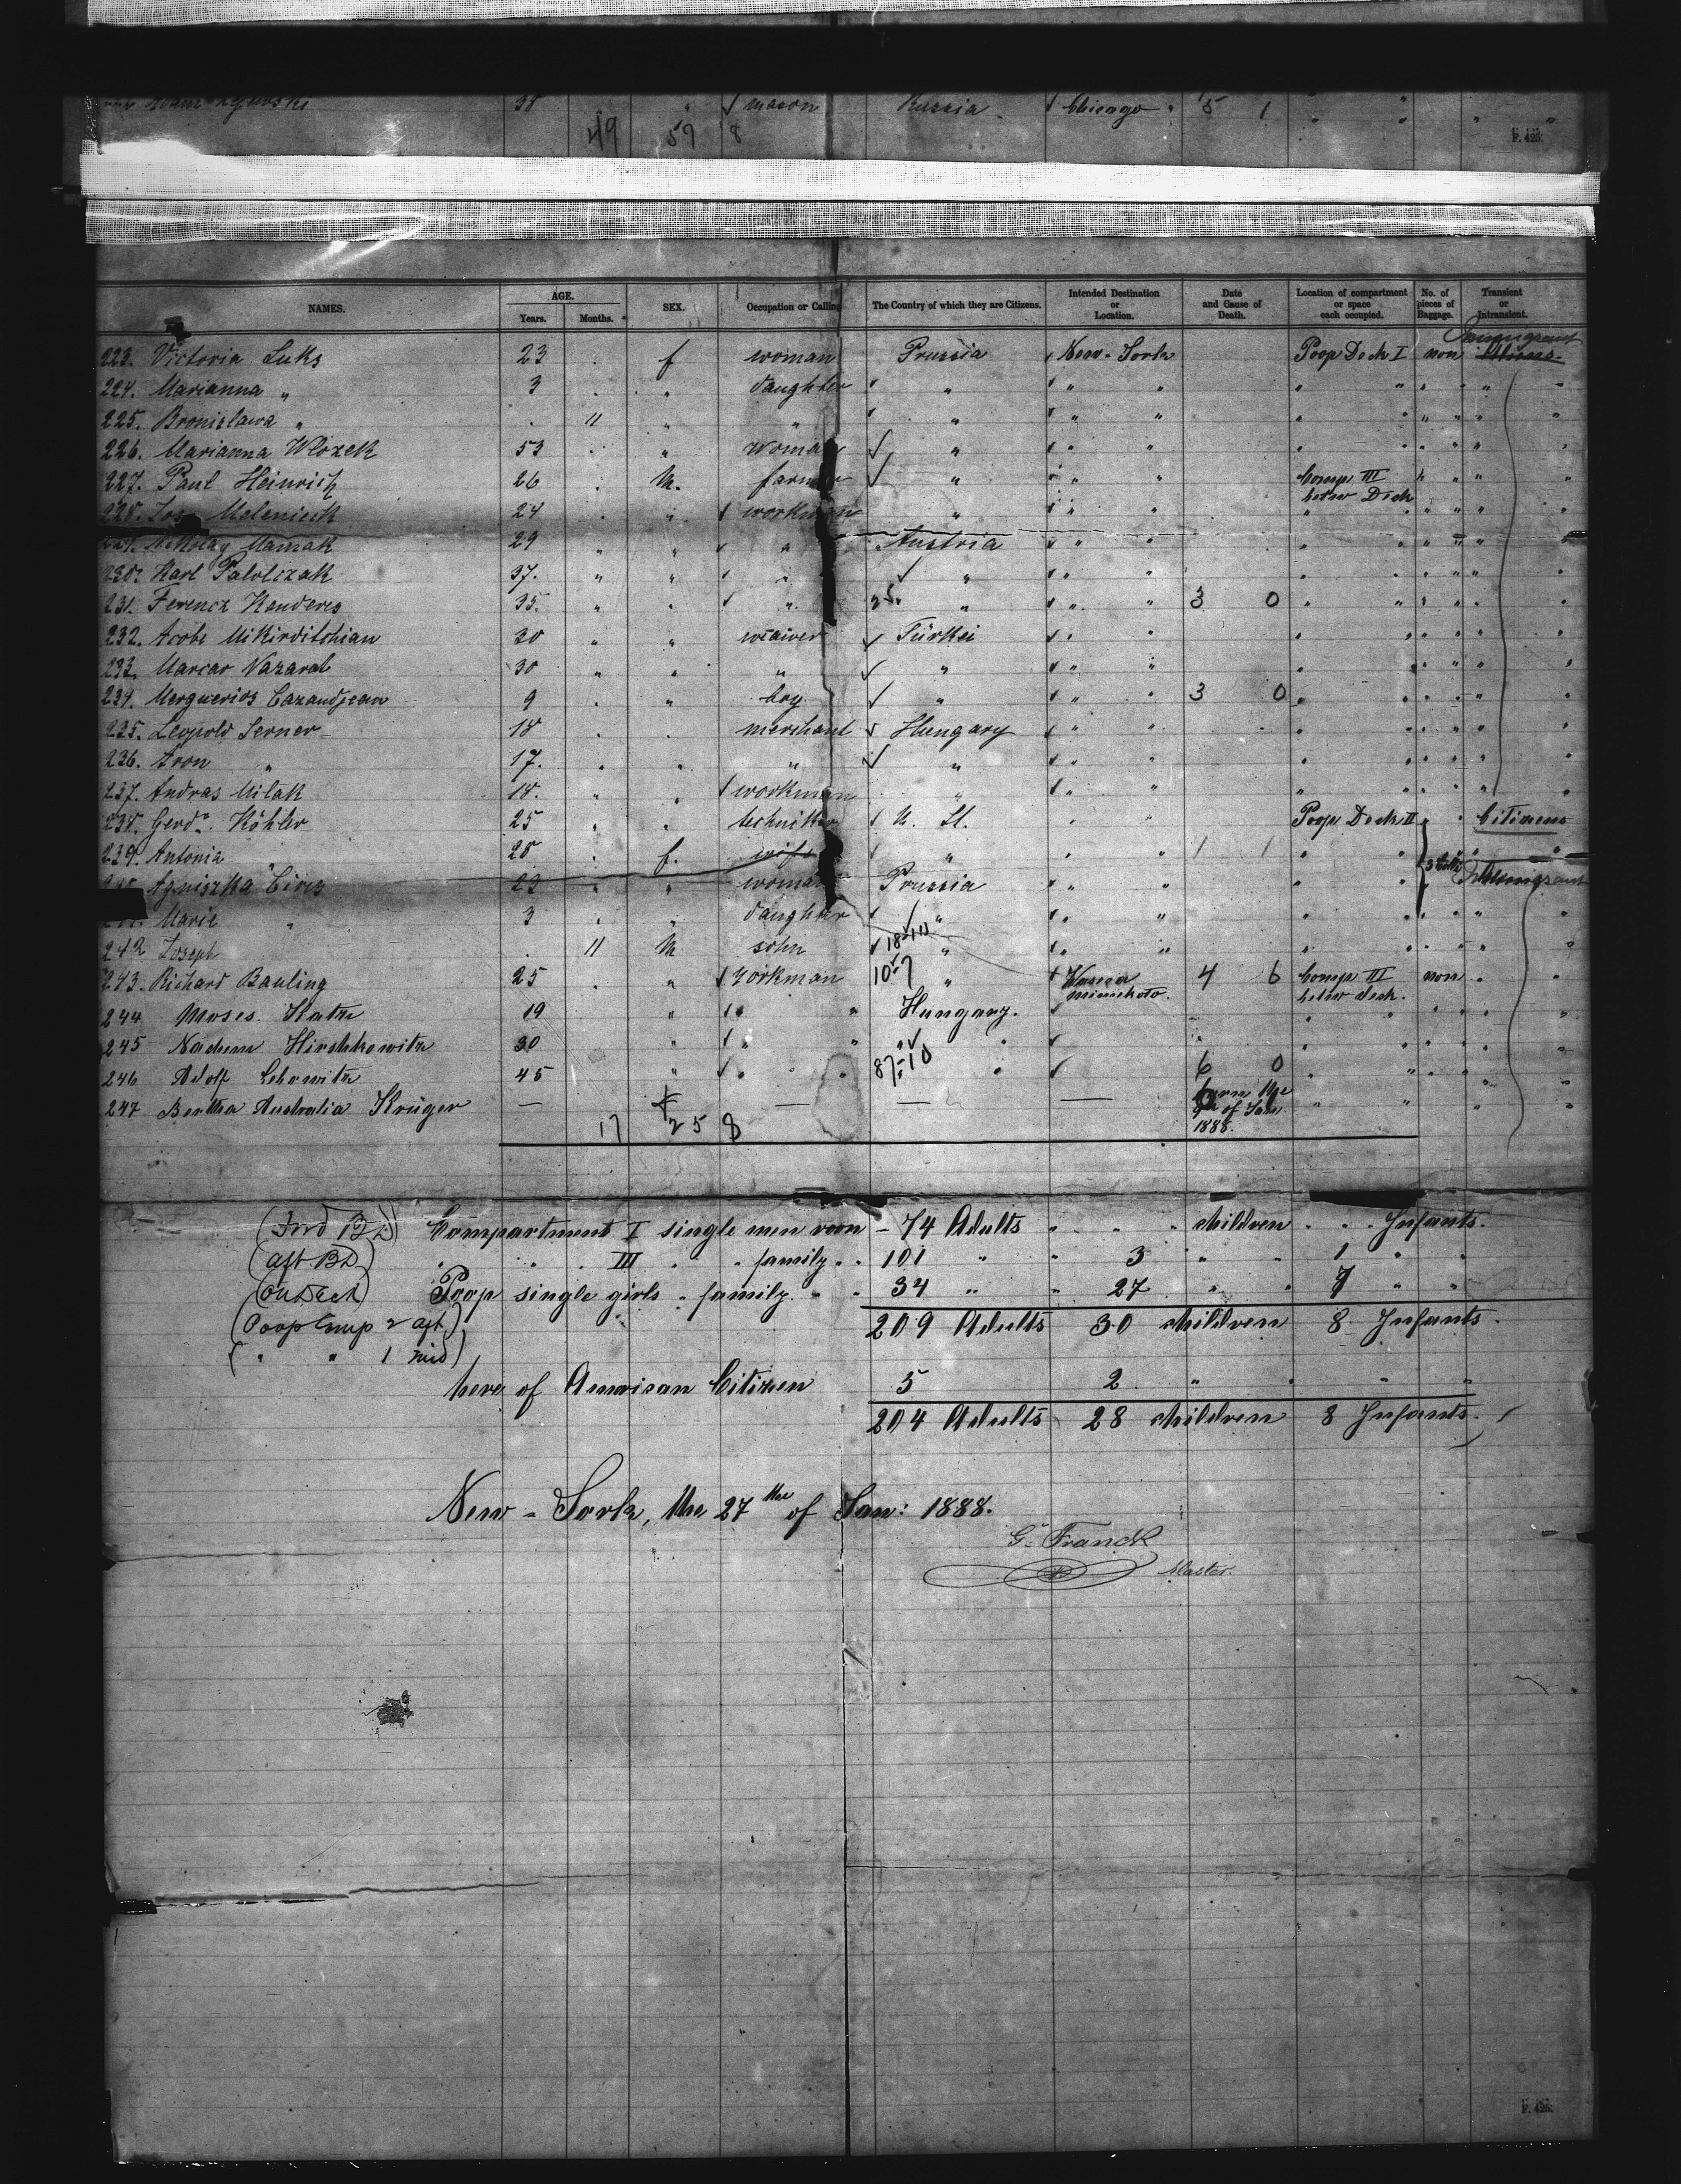 38 " mason Russia Chicago 5 1 " "
49 59 8
F. 425.
NAMES. AGE. Years. Months. SEX. Occupation or Calling The Country of which they are Citizens. Intended Destination or Location. Date and Cause of Death. Location of compartment or space each occupied. No. of pieces of Baggage. Transient or Intransient.
223. Victoria Luks 23 . f woman Prussia New-York Poop Deck I non
224. Marianna " 3 . " daughter " " " " " " " "
225. Bronislawa " . 11 " " " " " " " " " "
226. Marianna Wlozek 53 . " woman " " " " " " " "
227. Paul Heinrich 26 . M. farmer " " " Comp III betw Deck " " "
228. Jos. Melenieck 24 . " workman " " " " " " " "
229. Nikolay Mamak 29 " " " Austria " " " " " " "
230. Karl Palolizak 37. " " " " " " " " " " "
231. Ferencz Kenderes 35. " " " 25. " " " 3 0 " " " " "
232. Acobe Mikirditchian 30 " " weaiver Türkei " " " " " " "
233. Marcar Nazarat 30 " " " " " " " " " " "
234. Merguerios Cazandjean 9 . " boy " " " 3 0 " " " " "
235. Leopold Lerner 18 . . merchant Hungary " " " " " " "
236. Aron " 17. " " " " " " " " " " "
237. Andras Milak 18. " " workman " " " " " " " "
238. Gerd. Köhler 25 " " techniker U. St. " " Poop Deck II " " Citizens
239. Antonia " 28 . f. wife " " " 1 1 " " " "
240. Agniszka Cives 23 " " woman Prussia " " " "
241. Marie " 3 . " daughter " " " " " " " "
242 Joseph . 11 M. sohn 18-10 " " " " " " " "
243. Richard Bauling 25 . " Workman 10-7 " Waseca 4 6 Comp III non " "
minnehoto. betw deck.
244 Moses. Katz 19 " " " Hungary. " " " "
245 Nachem Hirshkowitz 30 " " " " " " " "
246 Adolf Lebowitz 45 " " " 87-10 " 6 0 " " " "
247 Bertha Australia Krüger — f — — — born the " " " "
of Jan
17 25 8 1888.
(Fwd BD) Compartment I single men room - 74 Adults " . . " children " . . Infants.
(Aft BD) " " III " " family " " 101 " " 3 " " 1 " "
(On Deck) Poop single girls " family. " " 34 " " 27 " " 7 " "
(Poop Comp 2 aft) 209 Adults 30 children 8 Infants.
( " " 1 mid)
here of Amerisan Citizen 5 2 " " " "
204 Adults 28 children 8 Infants.
New-York, the 27 the of Jan: 1888.
G. Franck
Master.
F. 425.